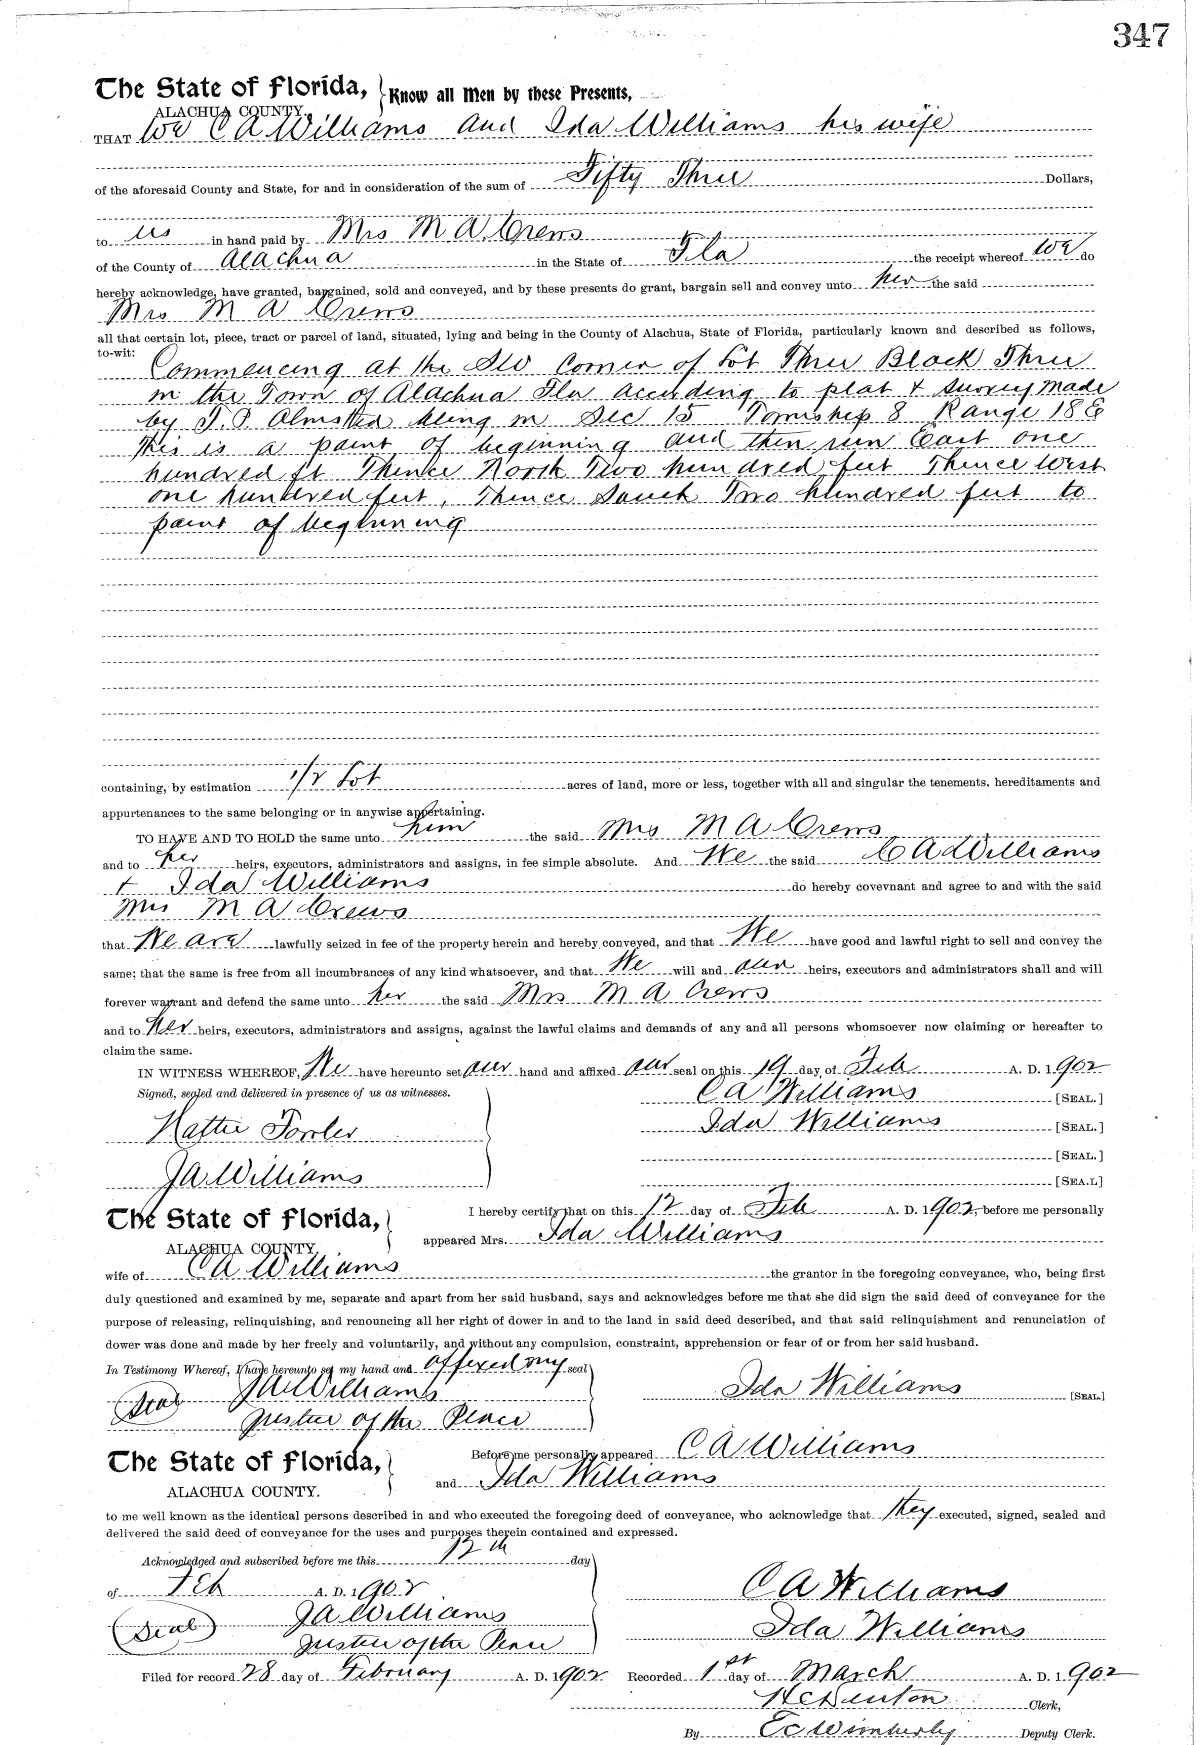 347
The State of Florida, Know all Men by these Presents,
ALACHUA COUNTY.
THAT We C A Williams and Ida Williams his wife
of the aforesaid County and State, for and in consideration of the sum of Fifty Three Dollars,
to us in hand paid by Mrs M A Crews
of the County of Alachua in the State of Fla the receipt whereof we do
hereby acknowledge, have granted, bargained, sold and conveyed, and by these presents do grant, bargain sell and convey unto her the said
Mrs M A Crews
all that certain lot, piece, tract or parcel of land, situated, lying and being in the County of Alachua, State of Florida, particularly known and described as follows,
to-wit:
Commencing at the SW Corner of Lot Three Block Three
in the Town of Alachua Fla according to plat & survey made
by J. P. Olmsted being in Sec 15 Township 8 Range 18 E
this is a point of beginning and then run East one
hundred ft Thence North Two hundred feet Thence West
one hundred feet, Thence South Two hundred feet to
point of beginning
containing, by estimation 1/2 Lot acres of land, more or less, together with all and singular the tenements, hereditaments and
appurtenances to the same belonging or in anywise appertaining.
TO HAVE AND TO HOLD the same unto him the said Mrs M A Crews
and to her heirs, executors, administrators and assigns, in fee simple absolute. And We the said C A Williams
+ Ida Williams do hereby covevnant and agree to and with the said
Mrs M A Crews
that We are lawfully seized in fee of the property herein and hereby conveyed, and that We have good and lawful right to sell and convey the
same; that the same is free from all incumbrances of any kind whatsoever, and that We will and our heirs, executors and administrators shall and will
forever warrant and defend the same unto her the said Mrs M A Crews
and to her heirs, executors, administrators and assigns, against the lawful claims and demands of any and all persons whomsoever now claiming or hereafter to
claim the same.
IN WITNESS WHEREOF, We have hereunto set our hand and affixed our seal on this 19 day of Feb A. D. 1902
Signed, sealed and delivered in presence of us as witnesses. C A Williams [SEAL.]
Hattie Fowler Ida Williams [SEAL.]
[SEAL.]
J A Williams [SEA.L]
The State of Florida, I hereby certify that on this 12 day of Feb A. D. 1902, before me personally
ALACHUA COUNTY. appeared Mrs. Ida Williams
wife of C A Williams the grantor in the foregoing conveyance, who, being first
duly questioned and examined by me, separate and apart from her said husband, says and acknowledges before me that she did sign the said deed of conveyance for the
purpose of releasing, relinquishing, and renouncing all her right of dower in and to the land in said deed described, and that said relinquishment and renunciation of
dower was done and made by her freely and voluntarily, and without any compulsion, constraint, apprehension or fear of or from her said husband.
In Testimony Whereof, I have hereunto set my hand and affixed my seal
Seal J A Williams Ida Williams [SEAL.]
Justice of the Peace
The State of Florida, Before me personally appeared C A Williams
ALACHUA COUNTY. and Ida Williams
to me well known as the identical persons described in and who executed the foregoing deed of conveyance, who acknowledge that they executed, signed, sealed and
delivered the said deed of conveyance for the uses and purposes therein contained and expressed.
Acknowledged and subscribed before me this 12th day
of Feb A. D. 1902 C A Williams
Seal J A Williams Ida Williams
Justice of the Peace
Filed for record 28 day of February A. D. 1902 Recorded 1st day of March A. D. 1902
H C Denton Clerk,
By E C Wimberly Deputy Clerk.